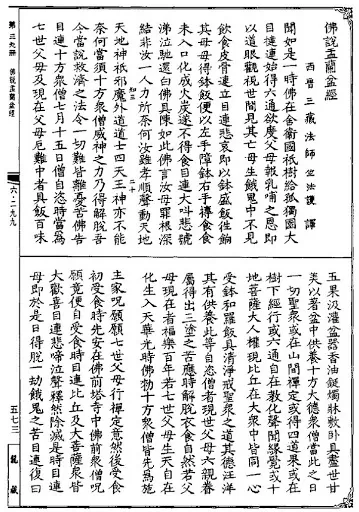 佛說盂蘭盆經
西晉三藏法師竺法護譯
聞如是一時佛在舍衛國祇樹給孤獨園大
目揵連始得六通欲度父母報乳哺之恩即
以道眼觀視世間見其亡母生餓鬼中不見
飲食皮骨連立目連悲哀即以鉢盛飯往餉
其母母得鉢飯便以左手障鉢右手摶食食
未入口化成火炭遂不得食目連大叫悲號
涕泣馳還白佛具陳如此佛言汝母罪根深
結非汝一人力所奈何汝雖孝順聲動天地
天地神祇邪魔外道道士四天王神亦不能
奈何當須十方衆僧威神之力乃得解脫吾
今當說救濟之法令一切難皆離憂苦佛告
目連十方衆僧七月十五日僧自恣時當爲
七世父母及現在父母厄難中者具飯百味
五果汲灌盆器香油錠燭牀敷臥具盡世甘
美以著盆中供養十方大德衆僧當此之日
一切聖衆或在山間禪定或得四道果或在
樹下經行或六通自在教化聲聞緣覺或十
地菩薩大人權現比丘在大衆中皆同一心
受鉢和羅飯具清淨戒聖衆之道其德汪洋
其有供養此等自恣僧者現世父母六親眷
屬得出三塗之苦應時解脫衣食自然若父
母現在者福樂百年若七世父母生天自在
化生入天華光時佛勑十方衆僧皆先爲施
主家呪願願七世父母行禪定意然後受食
初受食時先安在佛前塔寺中佛前衆僧呪
願竟便自受食時目連比丘及大菩薩衆皆
大歡喜目連悲啼泣聲釋然除滅是時目連
母即於是日得脫一劫餓鬼之苦目連復白
第三九冊 佛說盂蘭盆經
六·二九九
五七三 龍藏